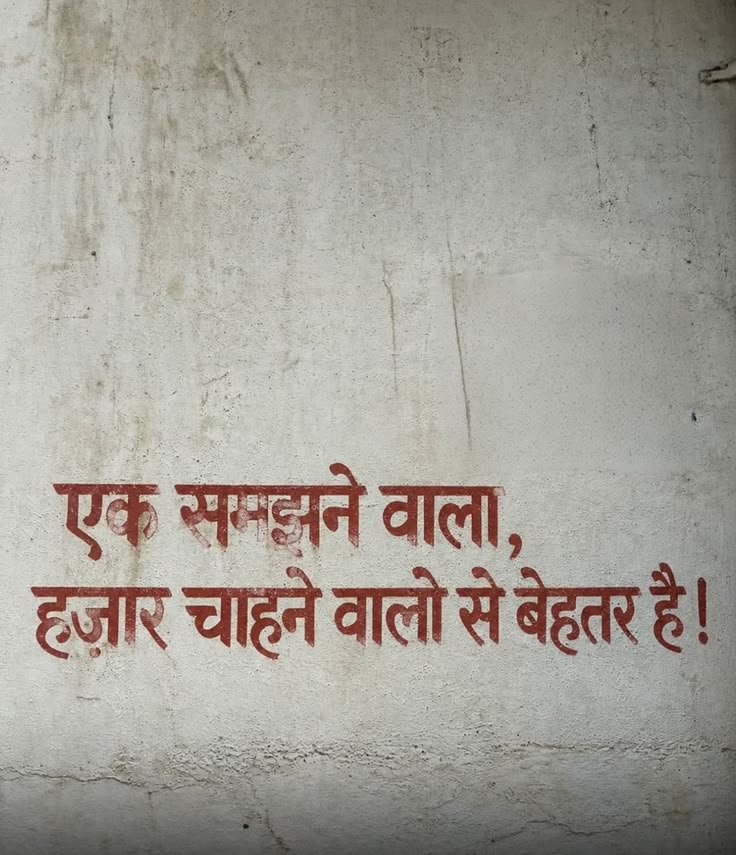 एक समझने वाला,
हज़ार चाहने वालो से बेहतर है!